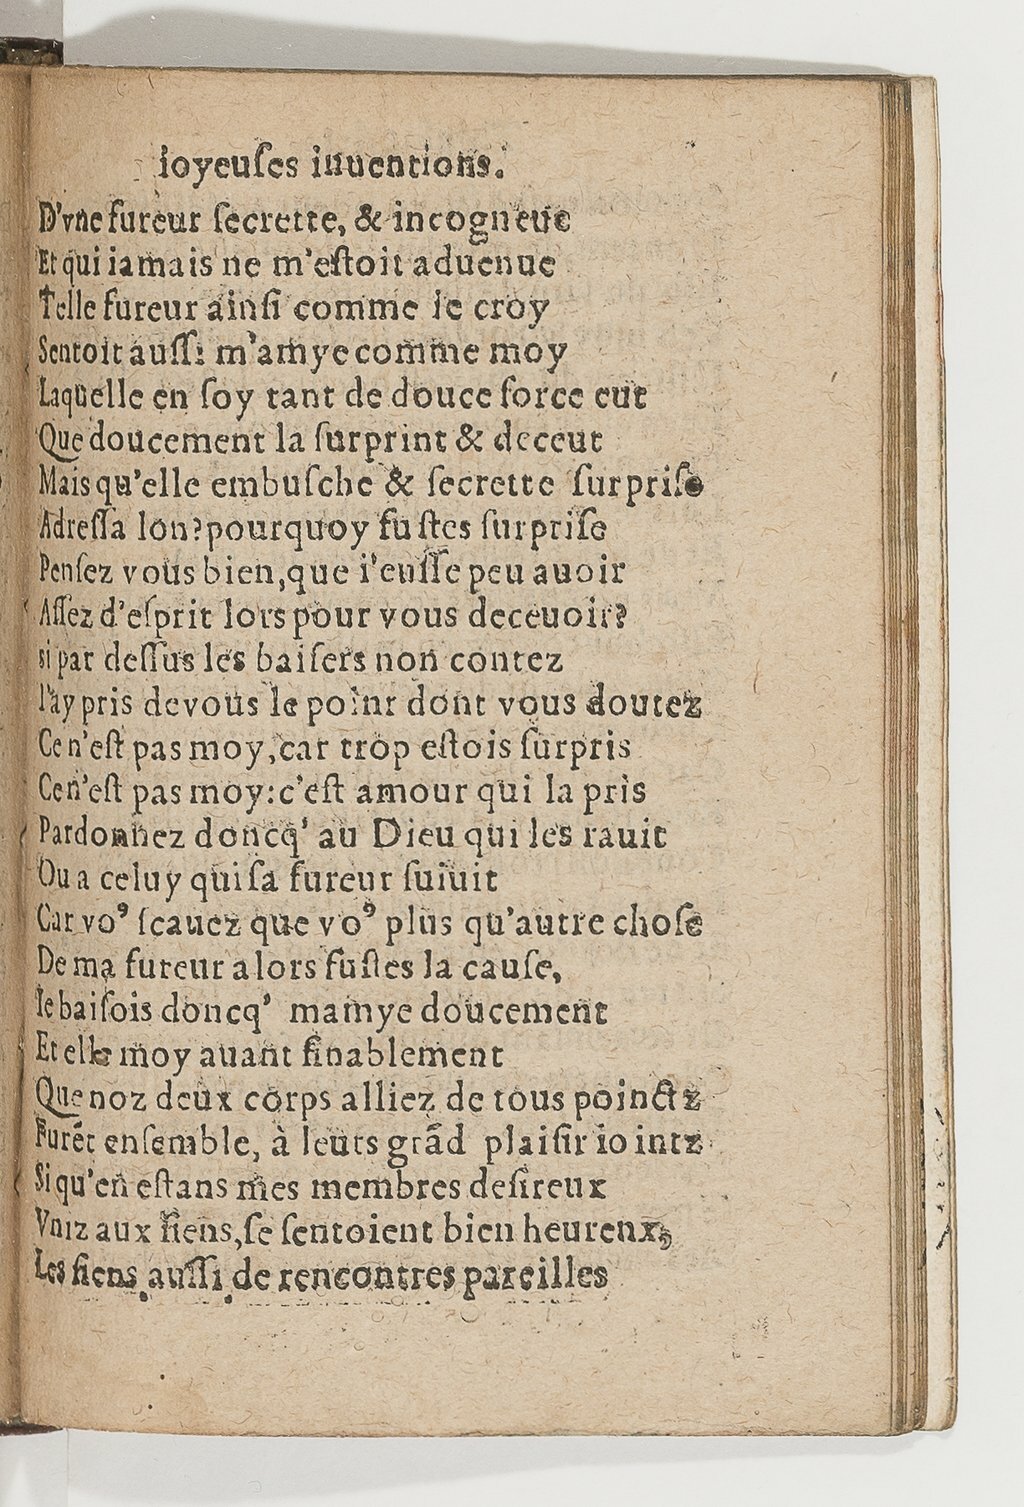 ioyeuſes inuentions.
D'vne fureur ſecrette, & incogneue
Et qui iamais ne m'eſtoit aduenue
Telle fureur ainſi comme ie croy
Sentoit auſſi m'amye comme moy
Laquelle en ſoy tant de douce force eut
Que doucement la ſurprint & deceut
Mais qu'elle embuſche & ſecrette ſurpriſe
Adreſſa lon? pourquoy fuſtes ſurpriſe
Penſez vous bien, que i'euſſe peu auoir
Aſſez d'eſprit lors pour vous deceuoir?
si par deſſus les baiſers non contez
I'ay pris de vous le point dont vous doutez
Ce n'eſt pas moy, car trop eſtois ſurpris
Ce n'eſt pas moy: c'eſt amour qui la pris
Pardonnez doncq' au Dieu qui les rauit
Ou a celuy qui ſa fureur ſuiuit
Car voꝰ ſcauez que voꝰ plus qu'autre choſe
De ma fureur alors fuſtes la cauſe,
Ie baiſois doncq' mamye doucement
Et elle moy auant finablement
Que noz deux corps alliez de tous poinctz
Furẽt enſemble, à leurs grãd plaiſir iointz
Si qu'en eſtans mes membres deſireux
Vniz aux ſiens, ſe ſentoient bien heurenx,
Les ſiens auſſi de rencontres pareilles